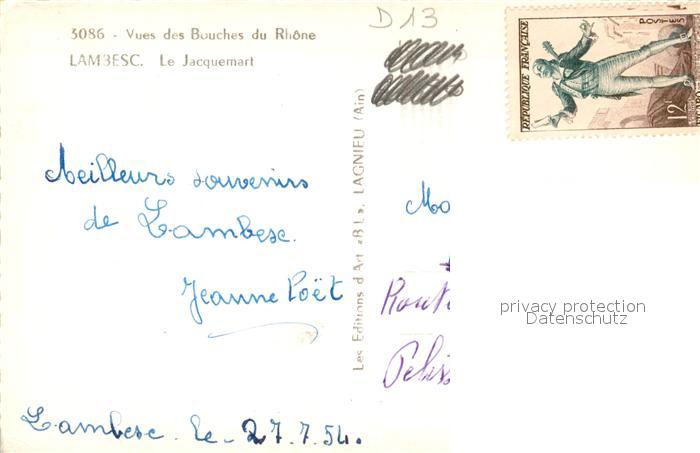 D13
3086 - Vues des Bouches du Rhône
LAMBESC. Le Jacquemart
Meilleurs souvenirs
de Lambesc.
Jeanne Poët
Lambesc. le - 27.7.54.
Les Editions d'Art «BL», LAGNIEU (Ain)
RÉPUBLIQUE FRANÇAISE
POSTES
12F
Mo
Route
Peliss
privacy protection
Datenschutz